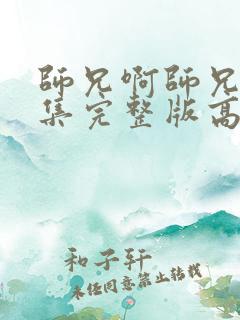 師兄啊師兄
集完整版高
和子轩
未经同意禁止转载